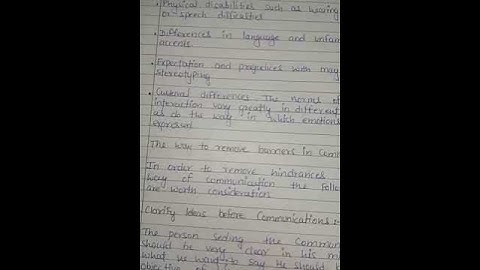 • Physical disabilities such as hearing
or speech difficulties
• Differences in language and unfam
accents.
• Expectation and prejudices with may
stereotyping
• Cultural differences. The norms of
interaction vary greatly in different
as do the way in which emotions
expressed
The way to remove barriers in Comm
In order to remove hindrances
way of communication the follo
are worth consideration
Clarify Ideas before Communications :-
The person sending the Commun
should be very clear in his m
what he want to say He should
objective of